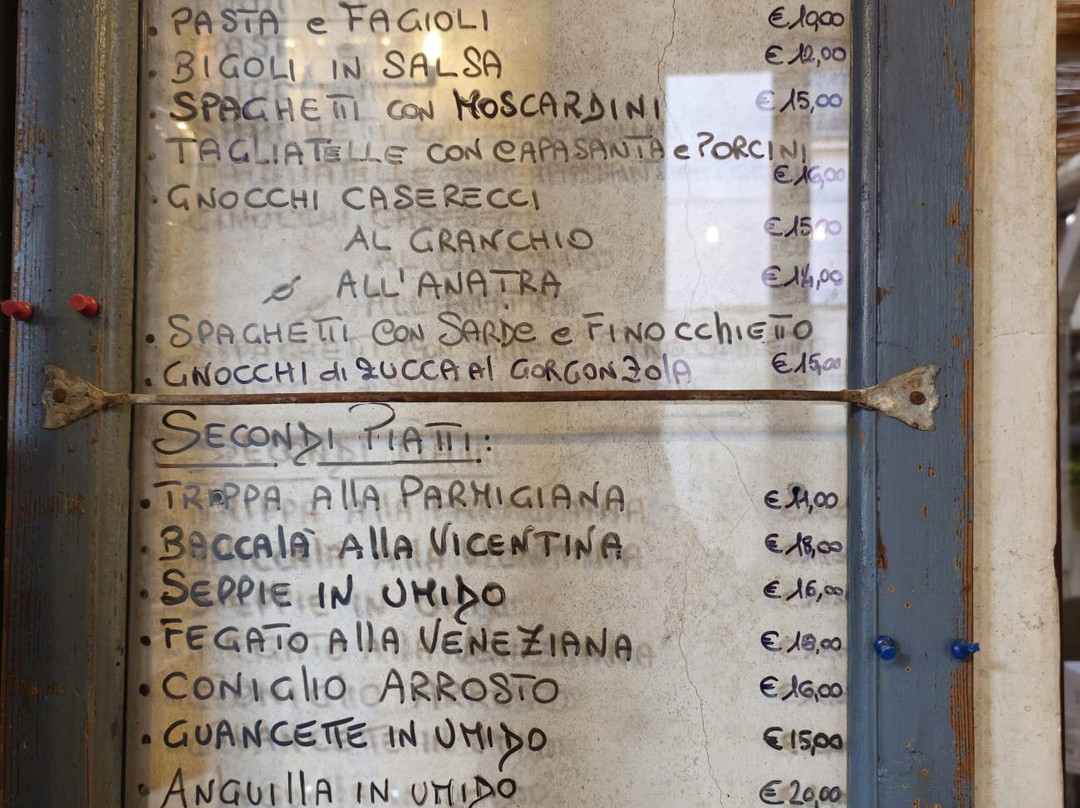 • PASTA e FAGIOLI €10,00
• BIGOLI IN SALSA €12,00
• SPAGHETTI CON MOSCARDINI €15,00
• TAGLIATELLE CON CAPASANTA e PORCINI
€16,00
• GNOCCHI CASERECCI
AL GRANCHIO €15,00
ALL'ANATRA €14,00
• SPAGHETTI CON SARDE e FINOCCHIETTO
• GNOCCHI di ZUCCA Al GORGONZOlA €15,00
SECONDI PIATTI:
• TRIPPA AllA PARMIGIANA
• BACCALÀ AllA VICENTINA €18,00
• SEPPIE IN UMIDO €16,00
• FEGATO AllA VENEZIANA €18,00
• CONIGlIO ARROSTO €16,00
• GUANCETTE IN UMIDO €15,00
ANGUIllA IN UMIDO €20,00